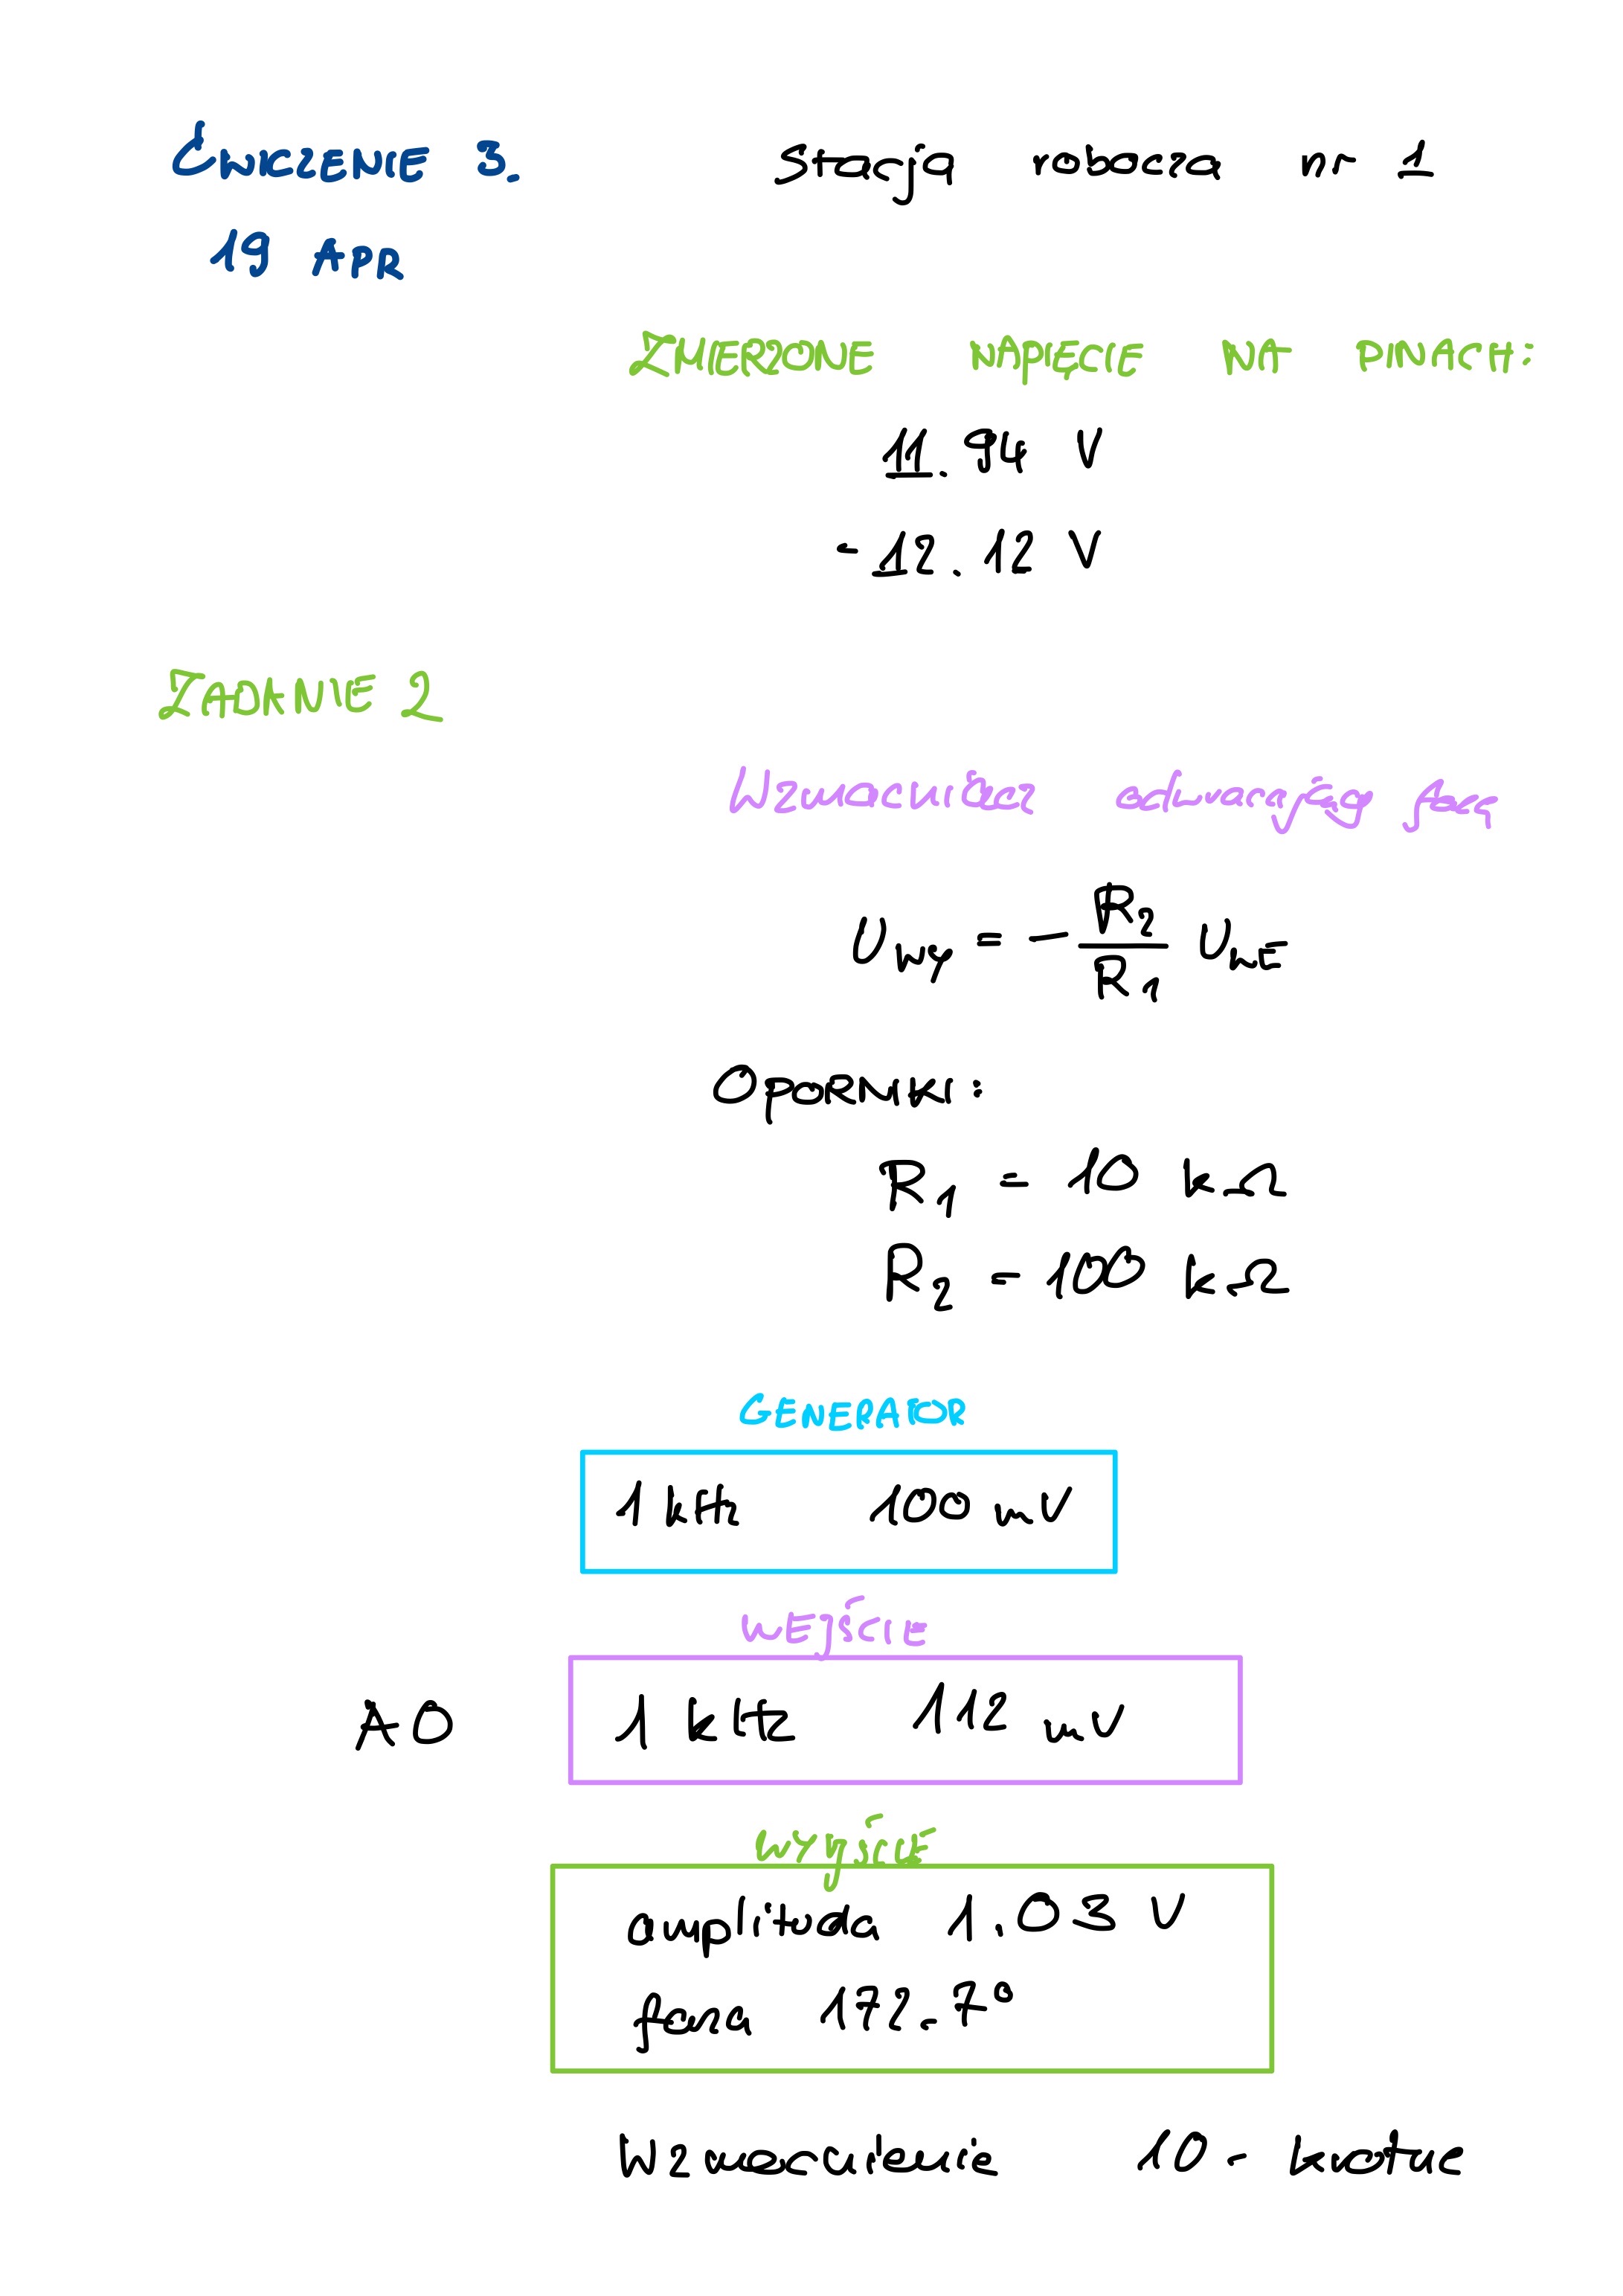 ĆWICZENIE 3. Stacja robocza nr 1
19 APR
ZMIERZONE NAPIĘCIE NA PINACH:
11.94 V
-12.12 V
ZADANIE 2
Wzmacniacz odwracający fazę
U_WY = - R_2 / R_1 U_WE
OPORNIKI:
R_1 = 10 kΩ
R_2 = 100 kΩ
GENERATOR
1 kHz 100 mV
WEJŚCIE
AO 1 kHz 112 mV
WYJŚCIE
amplituda 1.03 V
faza 172.7°
Wzmocnienie 10-krotne